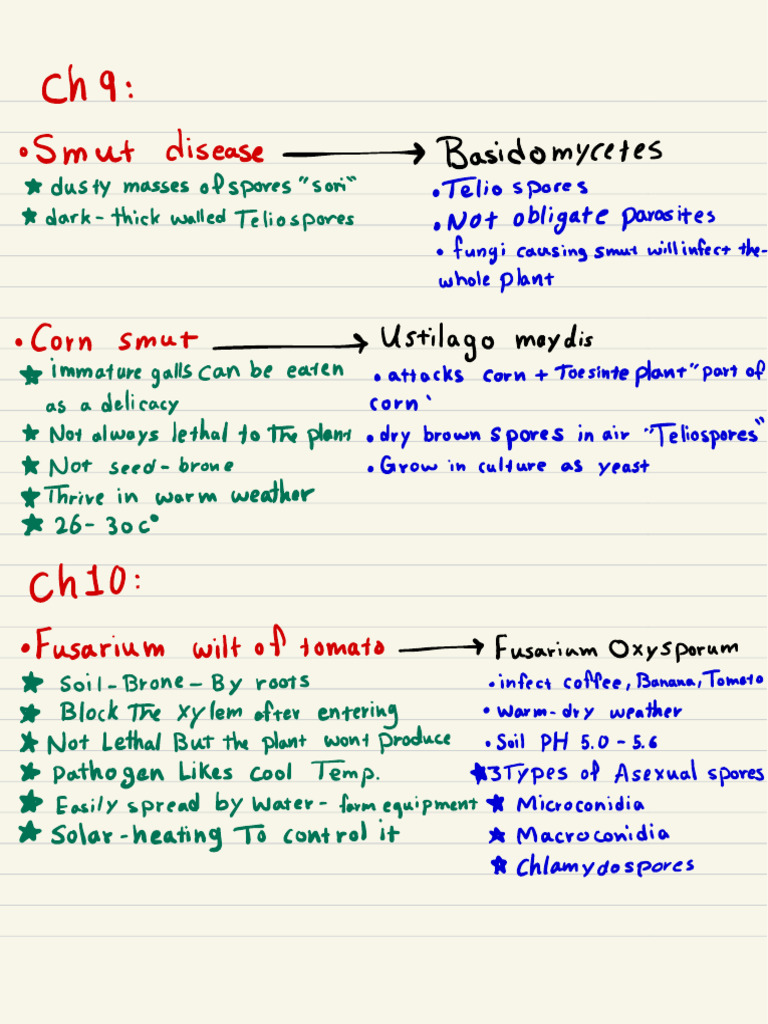 Ch 9:
• Smut disease → Basidomycetes
★ dusty masses of spores "sori"
• Telio spores
★ dark - thick walled Teliospores
• Not obligate parasites
• fungi causing smut will infect the-
whole plant
• Corn smut → Ustilago maydis
★ immature galls can be eaten
as a delicacy
• attacks corn + Toesinte plant "part of
corn'
★ Not always lethal to the plant
• dry brown spores in air "Teliospores"
★ Not seed - brone
• Grow in culture as yeast
★ Thrive in warm weather
★ 26 - 30 c°
Ch 10:
• Fusarium wilt of tomato → Fusarium Oxysporum
★ Soil - Brone - By roots
• infect coffee, Banana, Tomato
★ Block The xylem after entering
• Warm - dry weather
★ Not Lethal But the plant wont produce
• Soil PH 5.0 - 5.6
★ pathogen Likes cool Temp.
★ 3 Types of Asexual spores
★ Easily spread by water - farm equipment
★ Microconidia
★ Solar - heating To control it
★ Macroconidia
★ Chlamydospores